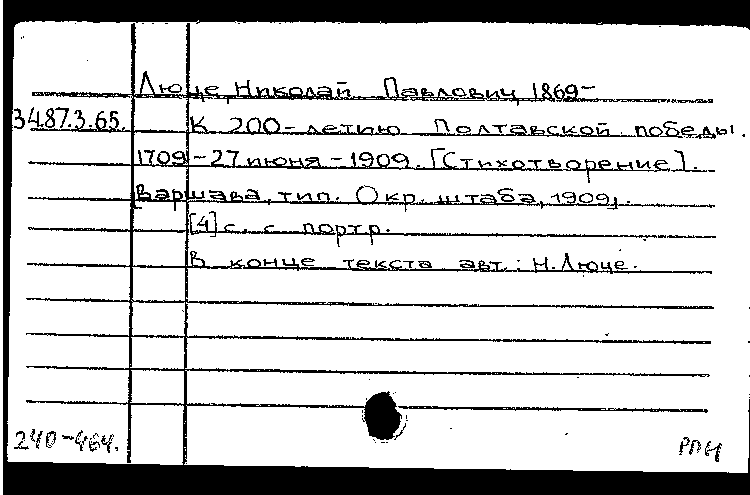 Люце, Николай Павлович, 1869-
34.87.3.65. К 200-летию Полтавской победы.
1709-27 июня-1909. [Стихотворение].
Варшава, тип. Окр. штаба, 1909.
[4] с. с портр.
В конце текста авт.: Н. Люце.
240-464.